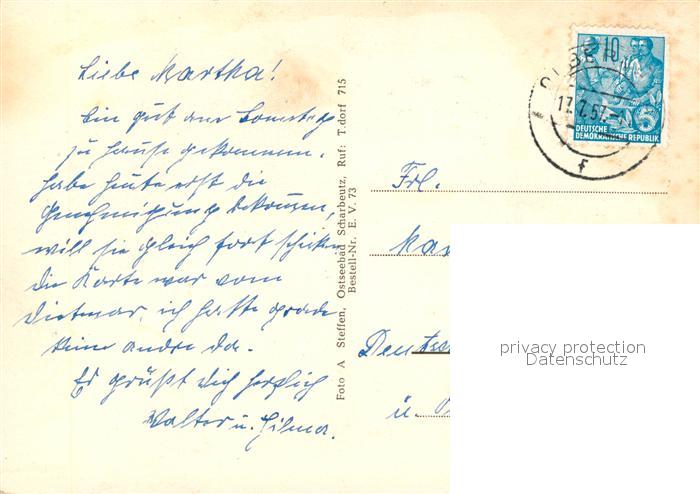 Liebe Martha!
Bin gut am Sonntag
zu Hause gekommen.
habe heute erst die
Genehmigung bekommen,
will sie gleich fort schicken
die Karte war vom
Dietmar, ich hatte grade
keine andre da.
Es grüßt dich herzlich
Walter u. Hilma.
Foto A Steffen, Ostseebad Scharbeutz, Ruf: T.dorf 715
Bestell-Nr. E. V. 73
10
17.7.57
DEUTSCHE
DEMOKRATISCHE REPUBLIK
5
f
Frl.
Deutsc
u.
privacy protection
Datenschutz